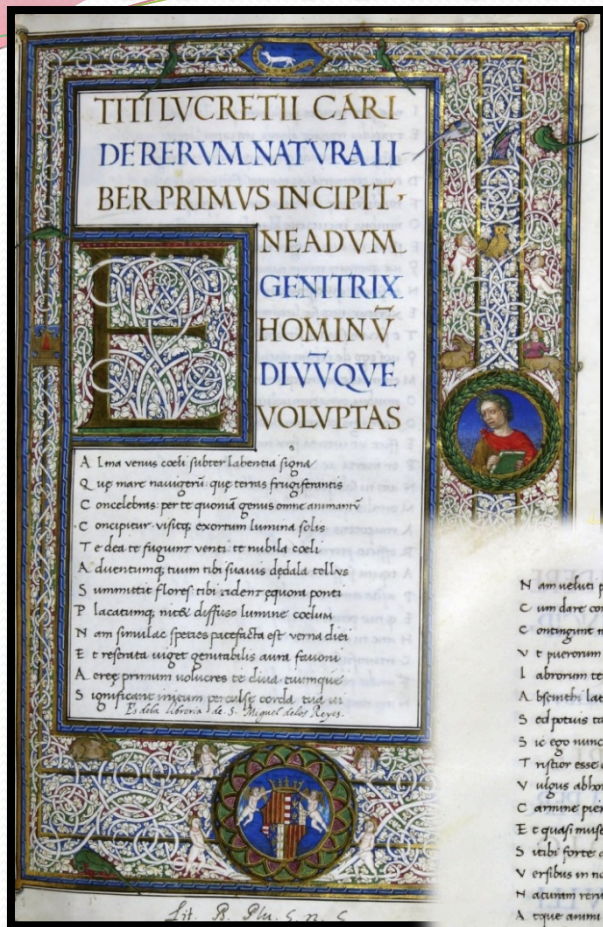 TITI LVCRETII CARI
DE RERVM NATVRA LI
BER PRIMVS INCIPIT
E
NEADVM
GENITRIX
HOMINV̄
DIVV̄QVE
VOLVPTAS
A lma venus cœli subter labentia signa
Q ue mare nauigerū que terras frugiferantis
C oncelebras per te quoniā genus omne animantū
C oncipitur visitq exortum lumina solis
T e dea te fugiunt venti te nubila cœli
A duentumq tuum tibi suauis dędala tellvs
S ummittit flores tibi rident equora ponti
P lacatumq nitet diffuso lumine cœlum
N am simulac species patefacta est verna diei
E t reserata uiget genitabilis aura fauoni
A ereę primum volucres te diua tuumque
S ignificant initum perculse corda tua ui
Es dela libreria de S. Miguel delos Reyes.
N am ueluti p
C um dare con
C ontingunt
V t puerorum
L abrorum te
A bsinthi lat
S ed potius ta
S ic ego nunc
T ristior esse
V ulgus abhor
C armine pier
E t quasi muse
S i tibi forte
V ersibus in no
N aturam reru
A tque animi